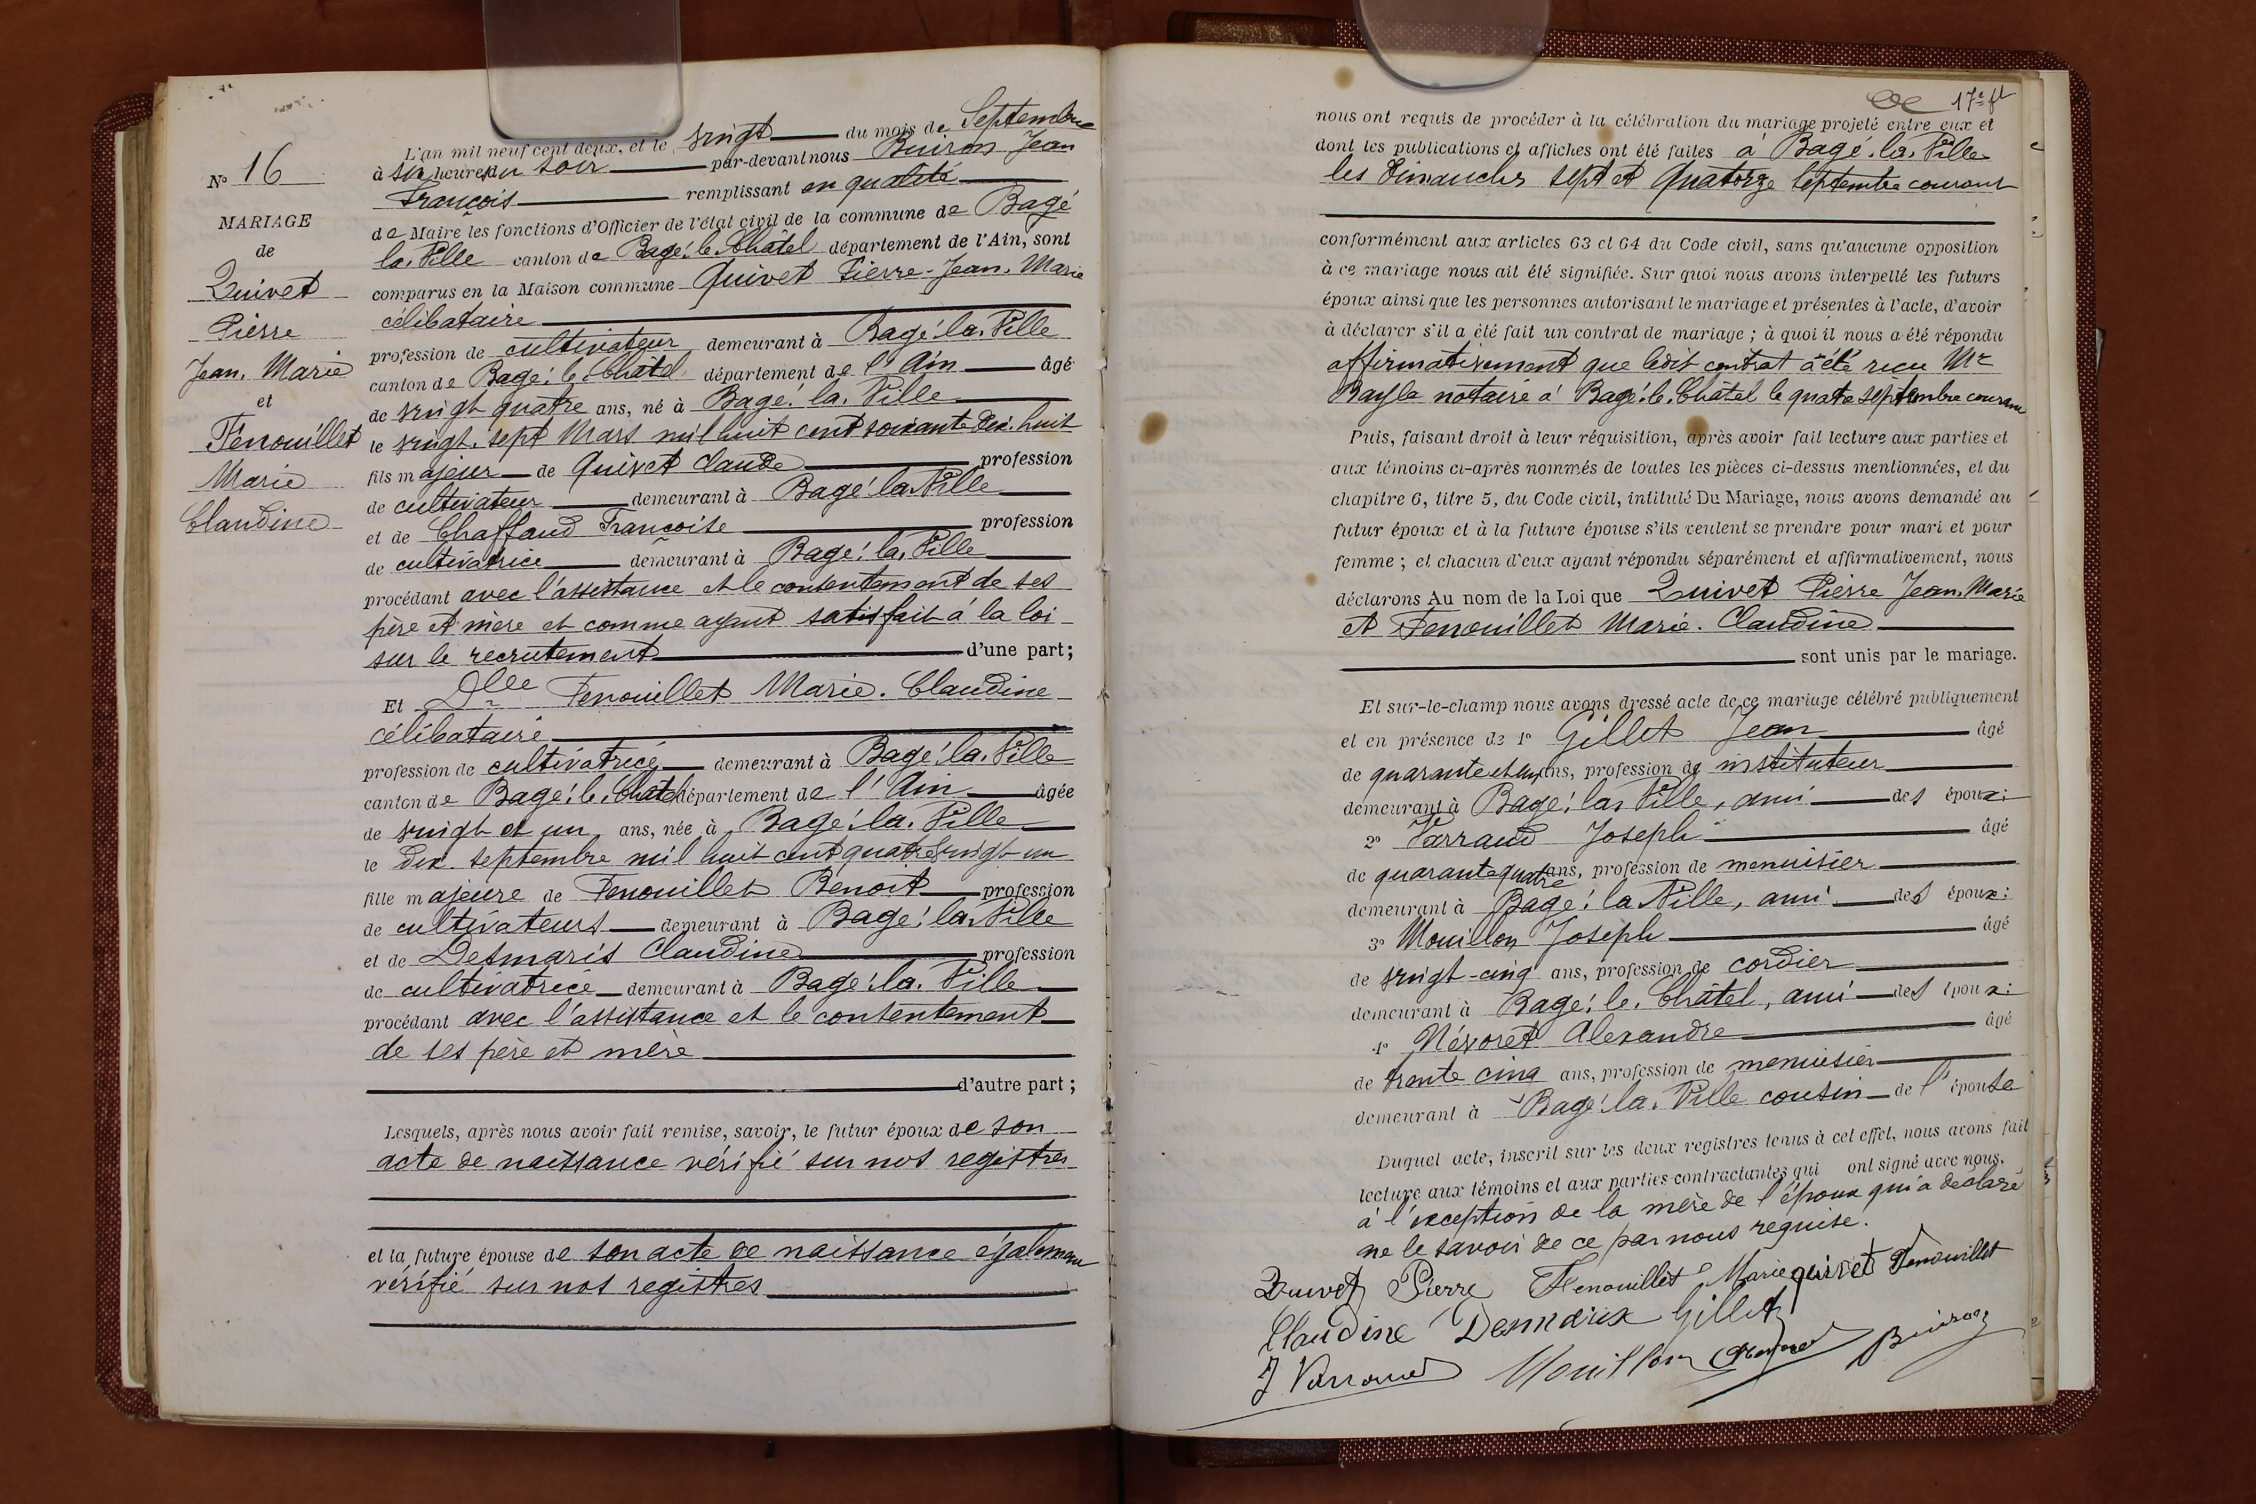 N° 16
MARIAGE
de
Quivet
Pierre
Jean, Marie
et
Fenouillet
Marie
Claudine
L'an mil neuf cent deux, et le vingt du mois de Septembre
à six heures du soir par-devant nous Buiron Jean
François remplissant en qualité
de Maire les fonctions d'Officier de l'état civil de la commune de Bagé
la Ville canton de Bagé-le-Châtel département de l'Ain, sont
comparus en la Maison commune Quivet Pierre-Jean-Marie
célibataire
profession de cultivateur demeurant à Bagé-la-Ville
canton de Bagé-le-Châtel département de l'Ain âgé
de vingt quatre ans, né à Bagé-la-Ville
le vingt-sept Mars mil huit cent soixante-dix-huit
fils majeur de Quivet Claude profession
de cultivateur demeurant à Bagé-la-Ville
et de Chaffaud Françoise profession
de cultivatrice demeurant à Bagé-la-Ville
procédant avec l'assistance et le consentement de ses
père et mère et comme ayant satisfait à la loi
sur le recrutement d'une part;
Et Dlle Fenouillet Marie-Claudine
célibataire
profession de cultivatrice demeurant à Bagé-la-Ville
canton de Bagé-le-Châtel département de l'Ain âgée
de vingt et un ans, née à Bagé-la-Ville
le dix septembre mil huit cent quatre vingt-un
fille majeure de Fenouillet Benoit profession
de cultivateurs demeurant à Bagé-la-Ville
et de Desmaris Claudine profession
de cultivatrice demeurant à Bagé-la-Ville
procédant avec l'assistance et le consentement
de ses père et mère
d'autre part;
Lesquels, après nous avoir fait remise, savoir, le futur époux de son
acte de naissance vérifié sur nos registres
et la future épouse de son acte de naissance également
vérifié sur nos registres
17e ft
nous ont requis de procéder à la célébration du mariage projeté entre eux et
dont les publications et affiches ont été faites à Bagé-la-Ville
les Dimanches sept et Quatorze Septembre courant
conformément aux articles 63 et 64 du Code civil, sans qu'aucune opposition
à ce mariage nous ait été signifiée. Sur quoi nous avons interpellé les futurs
époux ainsi que les personnes autorisant le mariage et présentes à l'acte, d'avoir
à déclarer s'il a été fait un contrat de mariage; à quoi il nous a été répondu
affirmativement que ledit contrat a été reçu Mr
Bayle notaire à Bagé-le-Châtel le quatre septembre courant
Puis, faisant droit à leur réquisition, après avoir fait lecture aux parties et
aux témoins ci-après nommés de toutes les pièces ci-dessus mentionnées, et du
chapitre 6, titre 5, du Code civil, intitulé Du Mariage, nous avons demandé au
futur époux et à la future épouse s'ils veulent se prendre pour mari et pour
femme; et chacun d'eux ayant répondu séparément et affirmativement, nous
déclarons Au nom de la Loi que Quivet Pierre Jean-Marie
et Fenouillet Marie-Claudine
sont unis par le mariage.
Et sur-le-champ nous avons dressé acte de ce mariage célébré publiquement
et en présence de 1° Gillet Jean âgé
de quarante et un ans, profession de instituteur
demeurant à Bagé-la-Ville, ami des époux;
2° Varraud Joseph âgé
de quarante quatre ans, profession de menuisier
demeurant à Bagé-la-Ville, ami des époux;
3° Mouillon Joseph âgé
de vingt-cinq ans, profession de cordier
demeurant à Bagé-le-Châtel, ami des époux;
4° Névoret Alexandre âgé
de trente cinq ans, profession de menuisier
demeurant à Bagé-la-Ville cousin de l'épouse
Duquel acte, inscrit sur les deux registres tenus à cet effet, nous avons fait
lecture aux témoins et aux parties contractantes qui ont signé avec nous.
à l'exception de la mère de l'époux qui a déclaré
ne le savoir de ce par nous requise.
Quivet Pierre Fenouillet Marie quivet Fenouillet
Claudine Desmaris Gillet
J Varraud Mouillon Buiron